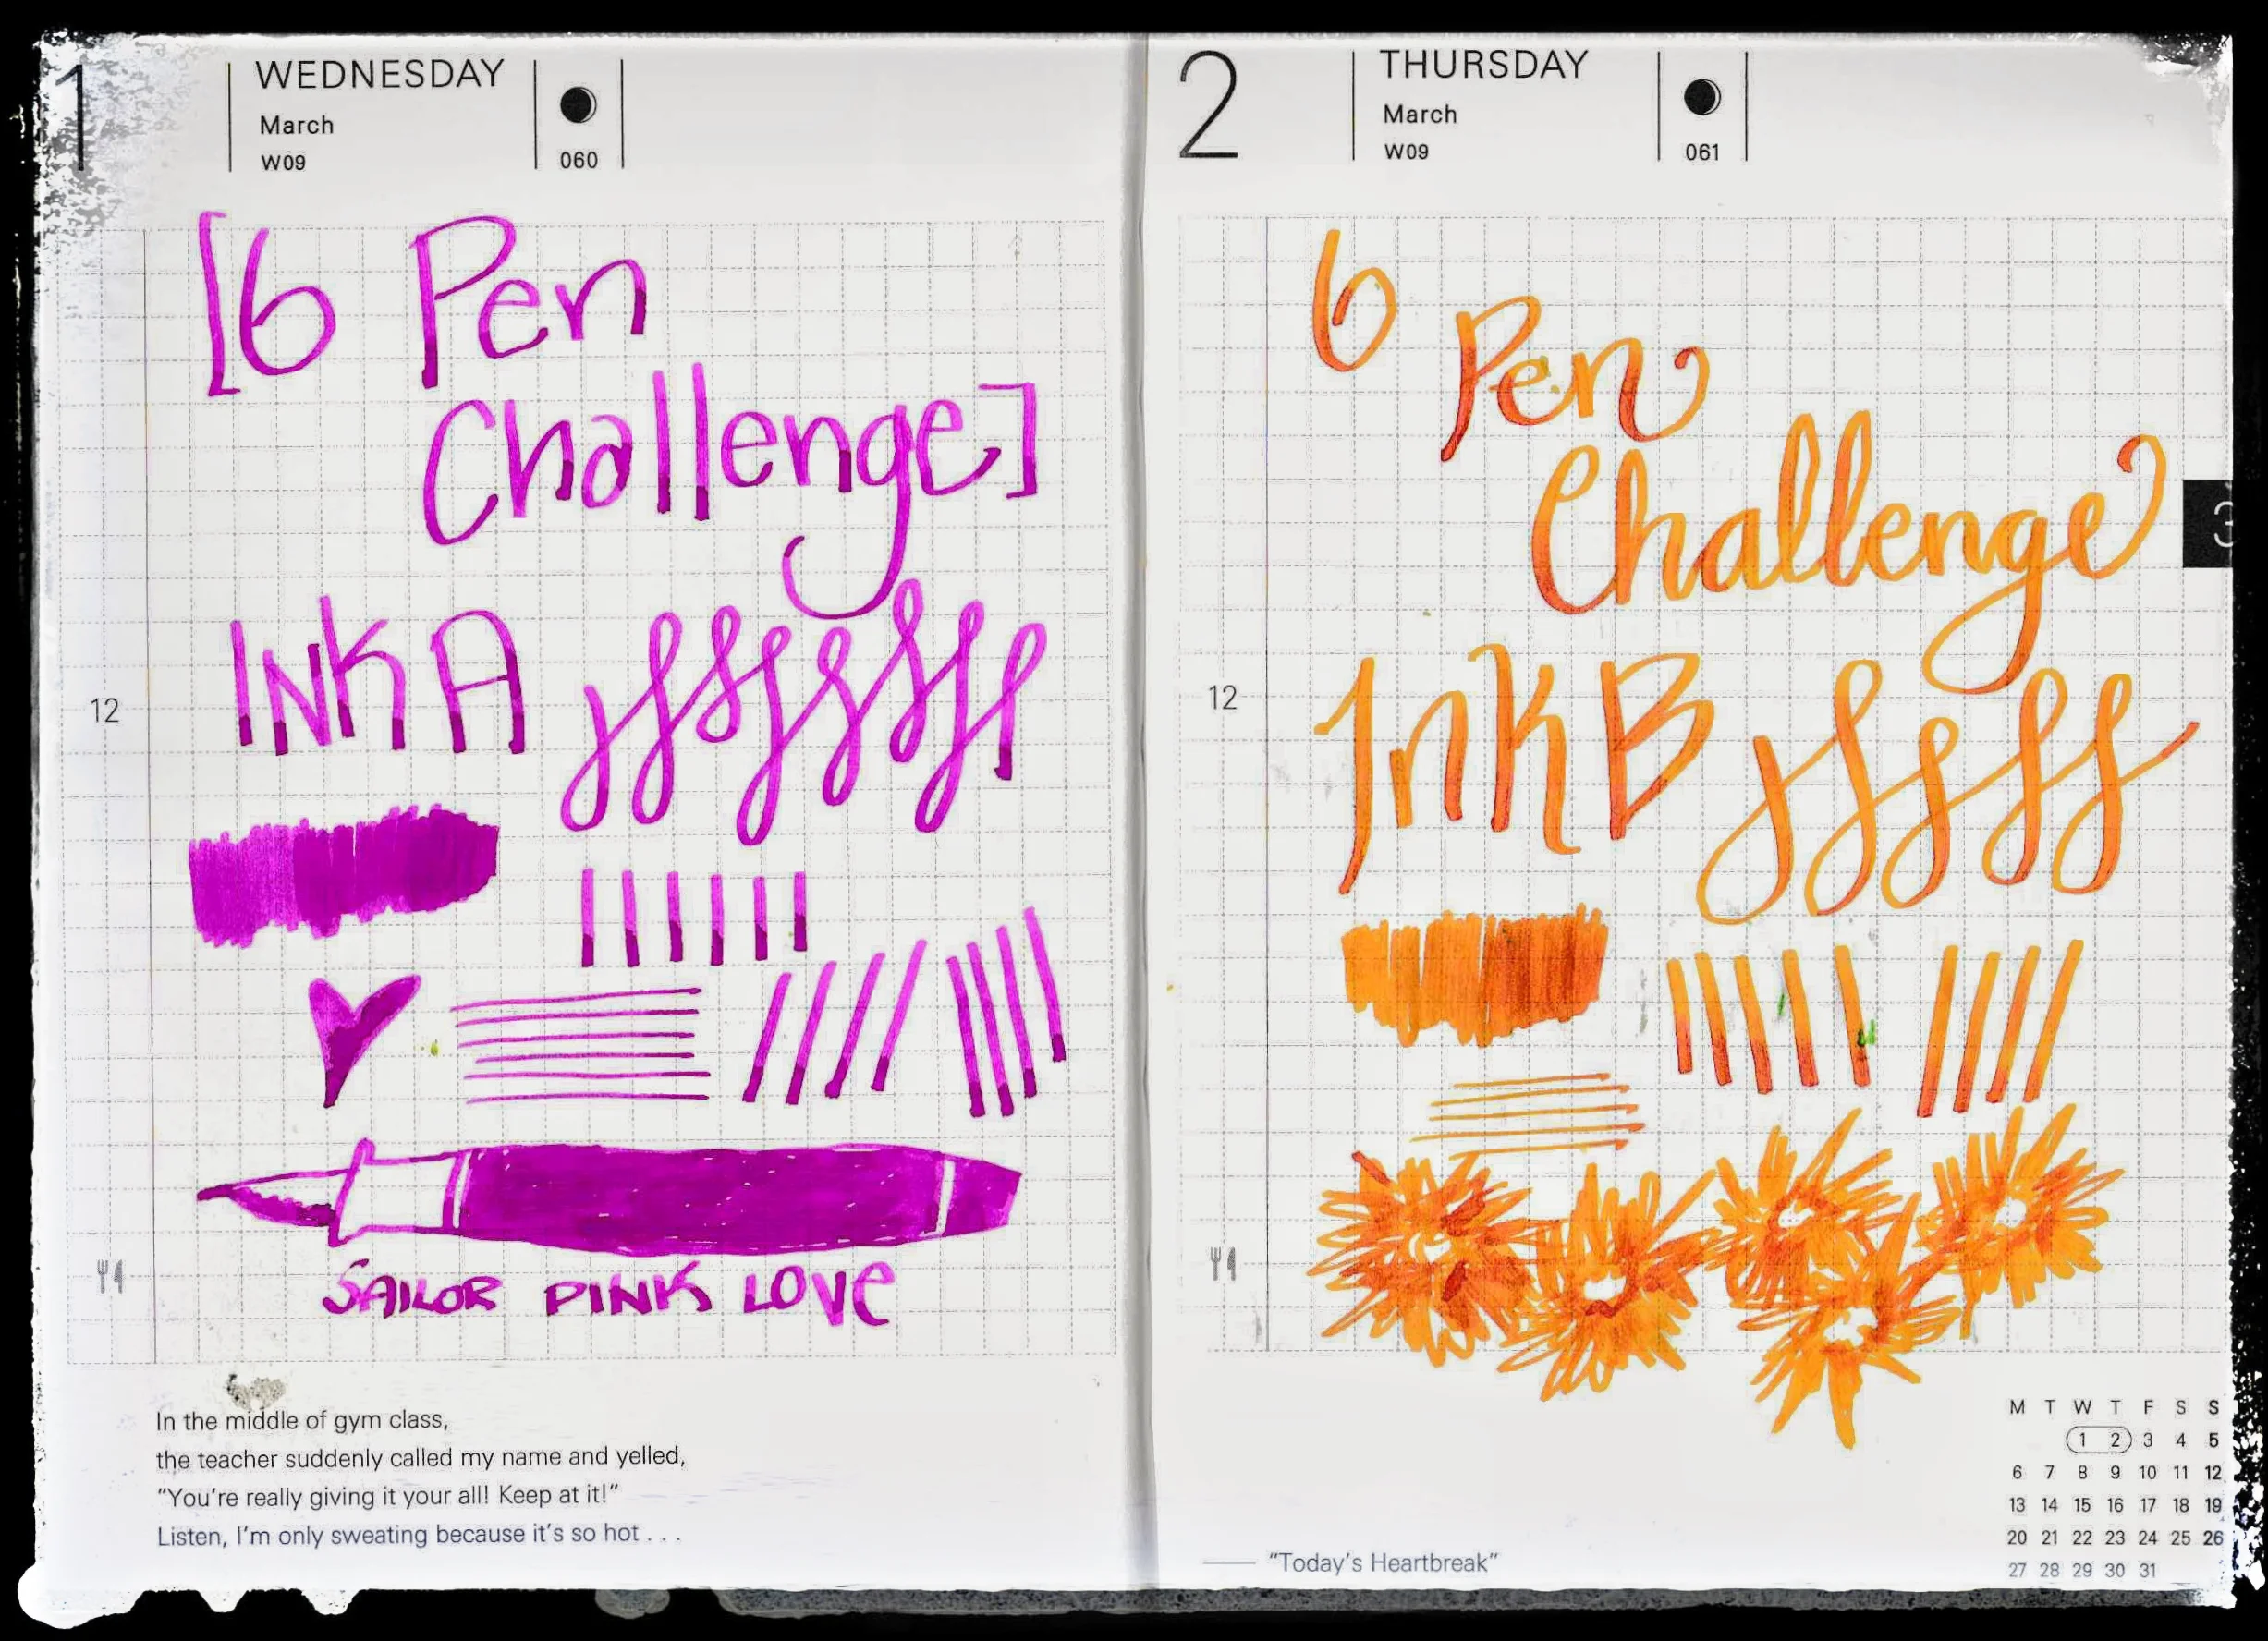 1
WEDNESDAY
March
W09
060
[6 Pen
Challenge]
INK A
12
SAILOR PINK LOVE
In the middle of gym class,
the teacher suddenly called my name and yelled,
“You’re really giving it your all! Keep at it!”
Listen, I’m only sweating because it’s so hot . . .
2
THURSDAY
March
W09
061
6
Pen
Challenge
3
12
Ink B
M T W T F S S
1 2 3 4 5
6 7 8 9 10 11 12
13 14 15 16 17 18 19
20 21 22 23 24 25 26
27 28 29 30 31
“Today’s Heartbreak”